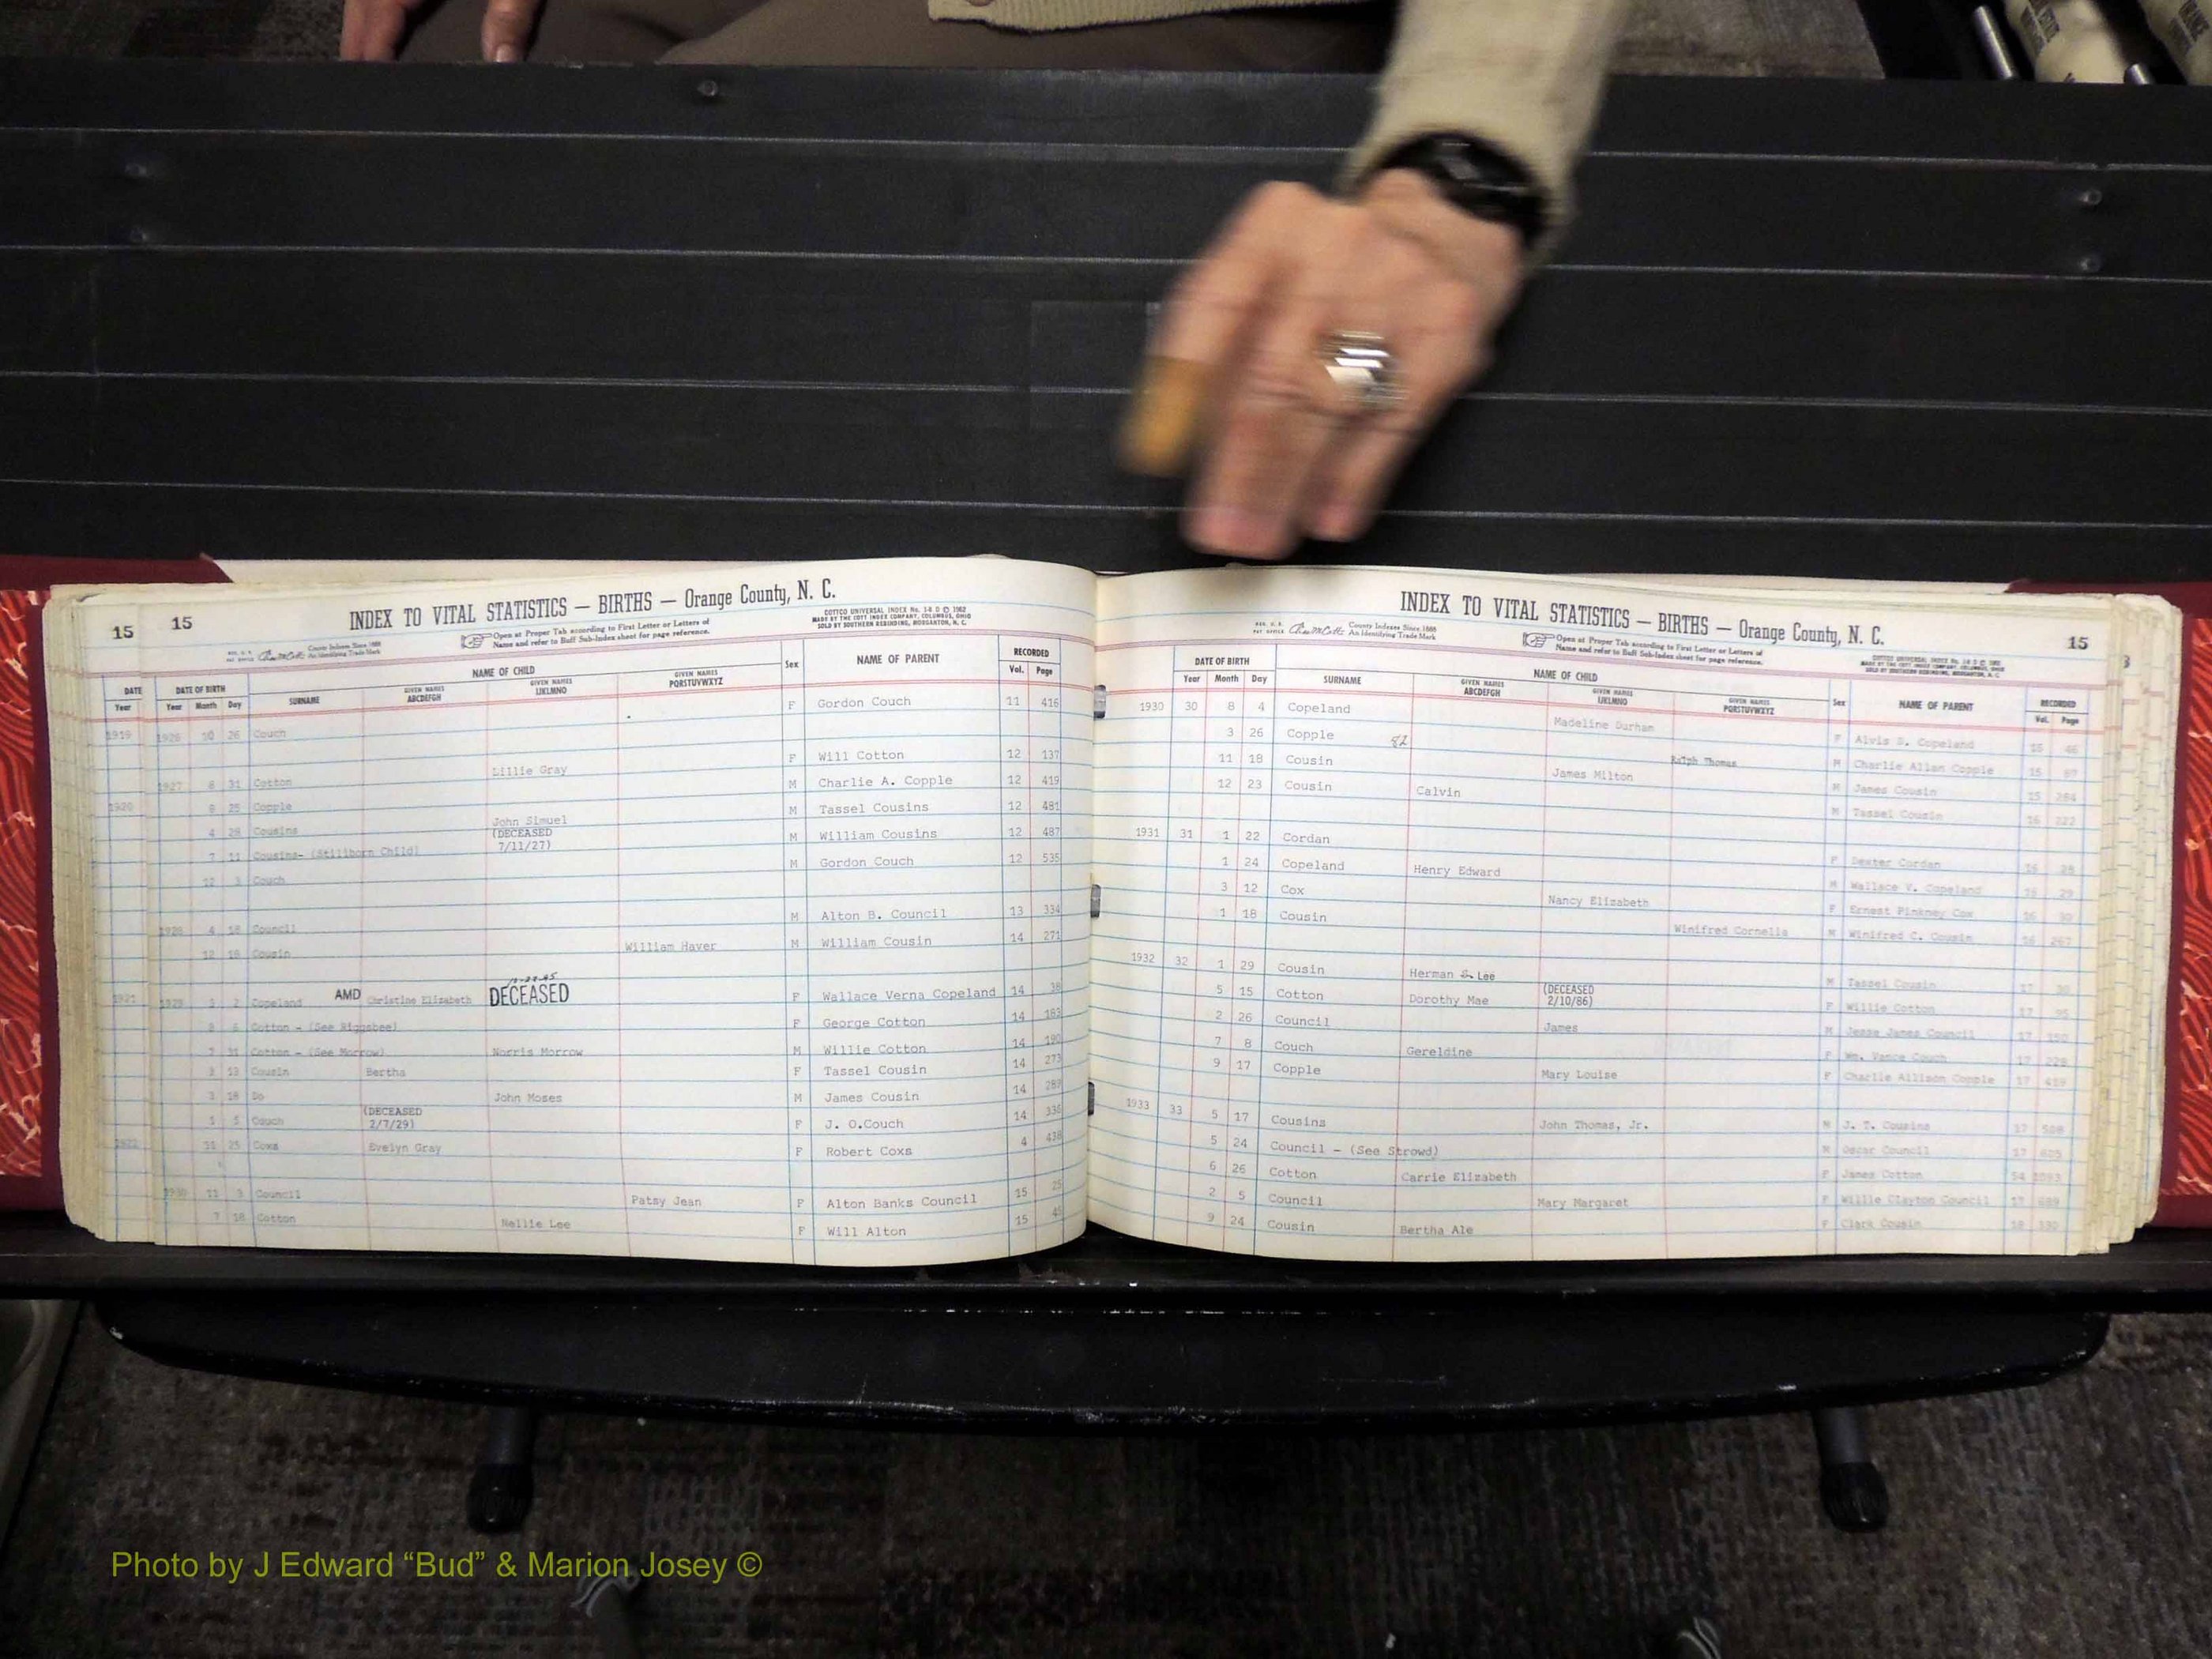 15 15
INDEX TO VITAL STATISTICS — BIRTHS — Orange County, N. C.
County Indexes Since 1888
An Identifying Trade Mark
Open at Proper Tab according to First Letter or Letters of
Name and refer to Buff Sub-Index sheet for page reference.
COTTCO UNIVERSAL INDEX No. 1-8 D © 1962
MADE BY THE COTT INDEX COMPANY, COLUMBUS, OHIO
SOLD BY SOUTHERN REBINDING, MORGANTON, N. C.
DATE DATE OF BIRTH NAME OF CHILD Sex NAME OF PARENT RECORDED
Year Year Month Day SURNAME GIVEN NAMES ABCDEFGH GIVEN NAMES IJKLMNO GIVEN NAMES PQRSTUVWXYZ Vol. Page
1919 1926 10 26 Couch F Gordon Couch 11 416
1927 8 31 Cotton Lillie Gray F Will Cotton 12 137
1920 6 25 Copple M Charlie A. Copple 12 419
4 28 Cousins John Simuel M Tassel Cousins 12 481
7 11 Cousins- (Stillborn Child) (DECEASED 7/11/27) M William Cousins 12 487
12 3 Couch M Gordon Couch 12 535
1928 4 18 Council M Alton B. Council 13 334
12 18 Cousin William Haver M William Cousin 14 271
1921 1929 3 2 Copeland AMD Christine Elizabeth DECEASED F Wallace Verna Copeland 14 38
Cotton - (See Riggsbee) F George Cotton 14 183
7 31 Cotton - (See Morrow) Norris Morrow M Willie Cotton 14 190
3 13 Cousin Bertha F Tassel Cousin 14 273
3 18 Do John Moses M James Cousin 14 289
1 5 Couch (DECEASED 2/7/29) F J. O.Couch 14 336
1922 11 25 Coxs Evelyn Gray F Robert Coxs 4 438
1930 11 3 Council Patsy Jean F Alton Banks Council 15 25
7 18 Cotton Nellie Lee F Will Alton 15 45
INDEX TO VITAL STATISTICS — BIRTHS — Orange County, N. C.
15
County Indexes Since 1888
An Identifying Trade Mark
Open at Proper Tab according to First Letter or Letters of
Name and refer to Buff Sub-Index sheet for page reference.
DATE OF BIRTH NAME OF CHILD Sex NAME OF PARENT RECORDED
Year Month Day SURNAME GIVEN NAMES ABCDEFGH GIVEN NAMES IJKLMNO GIVEN NAMES PQRSTUVWXYZ Vol. Page
1930 30 8 4 Copeland Madeline Durham F Alvis B. Copeland 16 46
3 26 Copple 82 Ralph Thomas M Charlie Allan Copple 15 87
11 18 Cousin James Milton M James Cousin 15 284
12 23 Cousin Calvin M Tassel Cousin 16 222
1931 31 1 22 Cordan F Dexter Cordan 16 28
1 24 Copeland Henry Edward M Wallace V. Copeland 16 29
3 12 Cox Nancy Elizabeth F Ernest Pinkney Cox 16 30
1 18 Cousin Winifred Cornelia M Winifred C. Cousin 16 267
1932 32 1 29 Cousin Herman & Lee M Tassel Cousin 17 30
5 15 Cotton Dorothy Mae (DECEASED 2/10/86) F Willie Cotton 17 95
2 26 Council James M Jesse James Council 17 150
7 8 Couch Gereldine F Wm. Vance Couch 17 228
9 17 Copple Mary Louise F Charlie Allison Copple 17 419
1933 33 5 17 Cousins John Thomas, Jr. M J. T. Cousins 17 508
5 24 Council - (See Strowd) M Oscar Council 17 625
6 26 Cotton Carrie Elizabeth F James Cotton 54 1093
2 5 Council Mary Margaret F Willie Clayton Council 17 689
9 24 Cousin Bertha Ale F Clark Cousin 18 330
Photo by J Edward “Bud” & Marion Josey ©